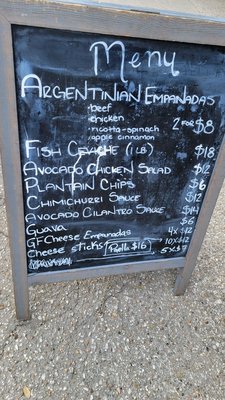 Menu
Argentinian Empanadas
·beef
·chicken
·ricotta-spinach 2 for $8
·apple cinnamon
Fish Ceviche (1 LB) $18
Avocado Chicken Salad $12
Plantain Chips $6
Chimichurri Sauce $12
Avocado Cilantro Sauce $14
Guava $6
GF Cheese Empanadas 4x$12
Cheese sticks Paella $16 10x$12
5x$7